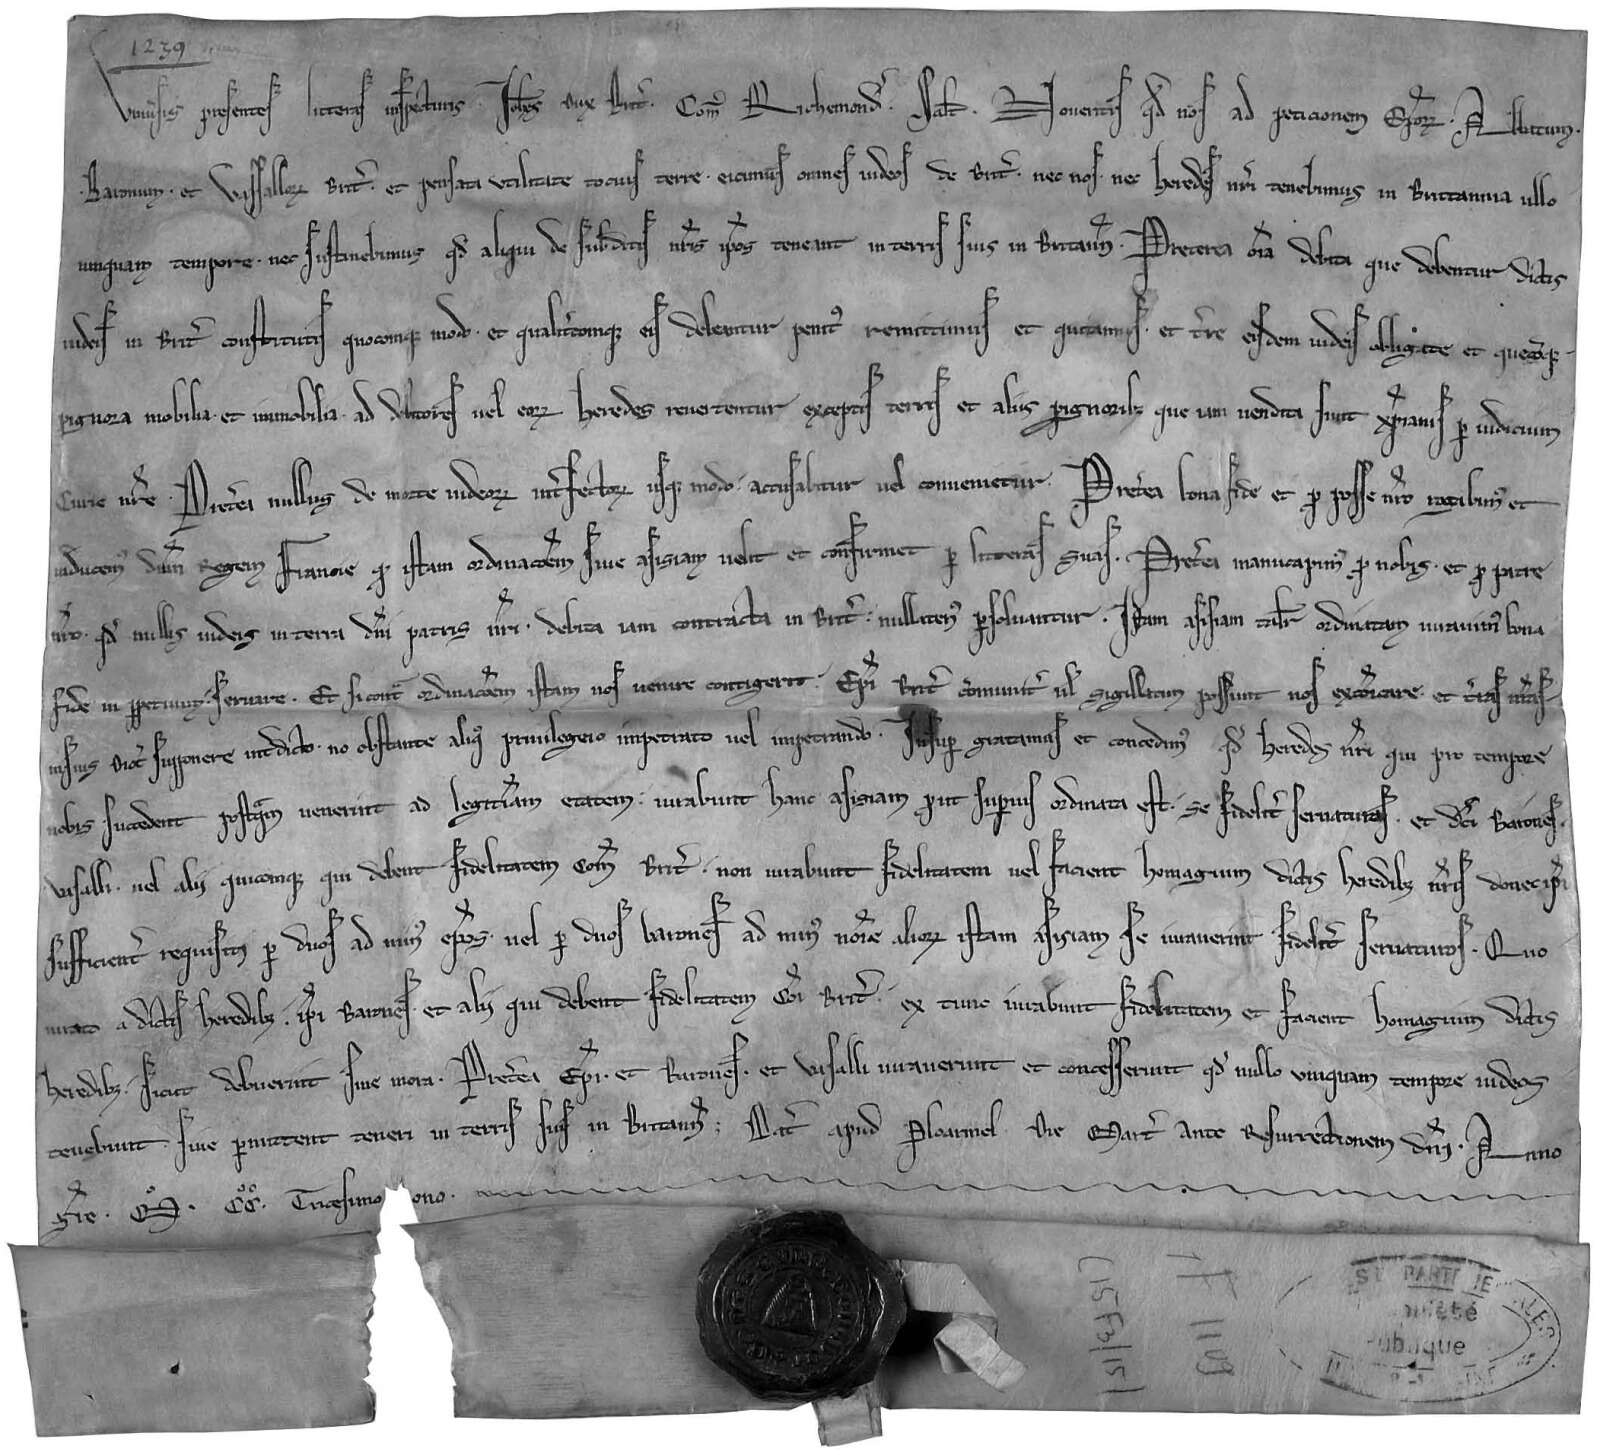 1239
Univ̾sis presentes litteras inspecturis. Joh̃es dux Brit̃. Com̃ Richemond̃. Salt̃. Noveritis qđ nos ad peticionem Ep̃orꝝ. Abbatum.
Baronum. et Vassallorꝝ Brit̃. et pensata utilitate tocius terre. eicimus omnes iudeos de Brit̃. nec nos. nec heredes nr̃i tenebimus in Brittannia ullo
unquam tempore. nec sustinebimus qđ aliqui de subditis nr̃is ip̃os teneant in terris suis in Britann̄. Preterea om̃ia debita que debentur dictis
iudeis in Brit̃ constitutis quocumqꝫ modo. et qualit̃cumqꝫ eis debeantur penitꝰ remittimus et quitamus. et t̃re eisdem iudeis obligate et quecũqꝫ
pignora mobilia. et immobilia. ad debitores vel eorꝝ heredes revertentur exceptis terris et aliis pignoribꝫ que iam vendita sunt xp̃ianis ꝑ iudicium
Curie nr̃e. Pret̃ea nullus de morte iudeorꝝ int̃fectorꝝ usqꝫ modo. accusabitur vel convenietur. Pret̃ea bona fide et ꝓ posse nr̃o rogabimꝰ et
inducemꝰ dñm Regem Francie qđ istam ordinac̃oem sive assisiam velit et confirmet ꝑ litteras suas. Pret̃ea manucapimꝰ ꝓ nobis. et ꝓ patre
nr̃o. qđ nullis iudeis in terra dñi patris nr̃i. debita iam contracta in Brit̃. nullatenꝰ ꝑsolvantur. Istam assisiam talit̃ ordinatam iuravimꝰ bona
fide in ꝑpetuum servare. Et si cont̃ ordinac̃oem istam nos venire contigerit. Ep̃i Brit̃ com̃unit̃ vl̃ sigillatim possunt nos exc̃oicare. et t̃ras nr̃as
supponere int̃dicto. nõ obstante aliqꝰ privilegeio impetrato vel impetrando. Insuꝑ et concedimꝰ qđ heredes nr̃i qui pro tempore
nobis succedent postq̃m venerint ad legitimam etatem. iurabunt hanc assisiam ꝓut supius ordinata est. se fidelit̃ servaturos. et dc̃i Barones.
vasalli. vel alij quicumqꝫ qui debent fidelitatem Com̃ Brit̃. non iurabunt fidelitatem vel facient homagium dictis heredibꝫ nr̃is donec ip̃i
sufficient̃ requisiti ꝑ duos ad minꝰ ep̃os. vel ꝑ duos barones ad minꝰ noĩe aliorꝝ istam assisiam se iuraverint fidelit̃ servaturos. Quo
iurato a dictis heredibꝫ. ip̃i Barones. et alij qui debent fidelitatem Com̃i Brit̃. ex tunc iurabunt fidelitatem et facient homagium dictis
heredibꝫ. sicut debuerint sine mora. Pret̃ea Ep̃i. et Barones. et vasalli iuraverunt et concesserunt qđ nullo unquam tempore iudeos
tenebunt. sive ꝑmittent teneri in terris suis in Britann̄; Dat̃ apud Ploarmel die Mart̃ ante Resurrectionem dñi. Anno
gr̃e. M̊. C̊C̊. Tricesimo ono.